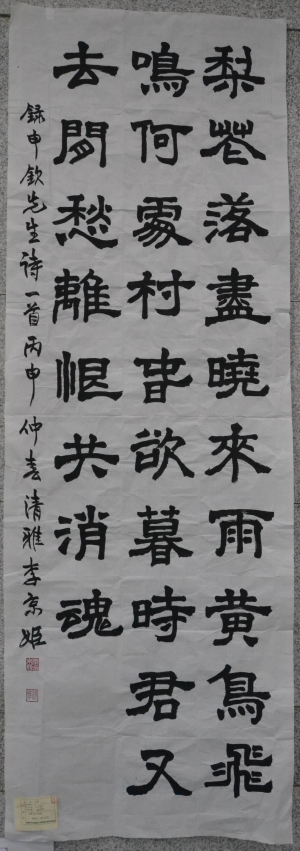 梨花落盡曉來雨黃鳥飛
鳴何處村春欲暮時君又
去閒愁離恨共消魂
錄申欽先生詩一首丙申仲春清雅李京姬